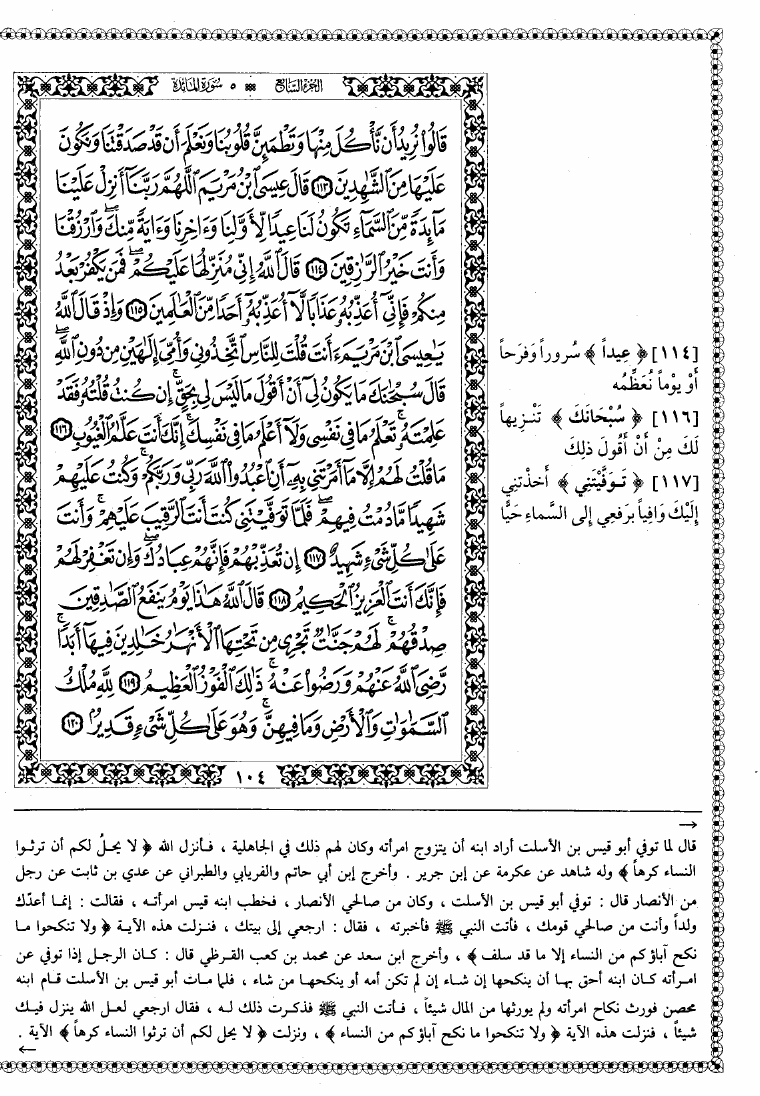 الجزء السابع ٥ سورة المائدة
قَالُوا۟ نُرِيدُ أَن نَّأْكُلَ مِنْهَا وَتَطْمَئِنَّ قُلُوبُنَا وَنَعْلَمَ أَن قَدْ صَدَقْتَنَا وَنَكُونَ
عَلَيْهَا مِنَ ٱلشَّٰهِدِينَ ١١٣ قَالَ عِيسَى ٱبْنُ مَرْيَمَ ٱللَّهُمَّ رَبَّنَآ أَنزِلْ عَلَيْنَا
مَآئِدَةً مِّنَ ٱلسَّمَآءِ تَكُونُ لَنَا عِيدًا لِّأَوَّلِنَا وَءَاخِرِنَا وَءَايَةً مِّنكَ ۖ وَٱرْزُقْنَا
وَأَنتَ خَيْرُ ٱلرَّٰزِقِينَ ١١٤ قَالَ ٱللَّهُ إِنِّى مُنَزِّلُهَا عَلَيْكُمْ ۖ فَمَن يَكْفُرْ بَعْدُ
مِنكُمْ فَإِنِّىٓ أُعَذِّبُهُۥ عَذَابًا لَّآ أُعَذِّبُهُۥٓ أَحَدًا مِّنَ ٱلْعَٰلَمِينَ ١١٥ وَإِذْ قَالَ ٱللَّهُ
يَٰعِيسَى ٱبْنَ مَرْيَمَ ءَأَنتَ قُلْتَ لِلنَّاسِ ٱتَّخِذُونِى وَأُمِّىَ إِلَٰهَيْنِ مِن دُونِ ٱللَّهِ ۖ
قَالَ سُبْحَٰنَكَ مَا يَكُونُ لِىٓ أَنْ أَقُولَ مَا لَيْسَ لِى بِحَقٍّ ۚ إِن كُنتُ قُلْتُهُۥ فَقَدْ
عَلِمْتَهُۥ ۚ تَعْلَمُ مَا فِى نَفْسِى وَلَآ أَعْلَمُ مَا فِى نَفْسِكَ ۚ إِنَّكَ أَنتَ عَلَّٰمُ ٱلْغُيُوبِ ١١٦
مَا قُلْتُ لَهُمْ إِلَّا مَآ أَمَرْتَنِى بِهِۦٓ أَنِ ٱعْبُدُوا۟ ٱللَّهَ رَبِّى وَرَبَّكُمْ ۚ وَكُنتُ عَلَيْهِمْ
شَهِيدًا مَّا دُمْتُ فِيهِمْ ۖ فَلَمَّا تَوَفَّيْتَنِى كُنتَ أَنتَ ٱلرَّقِيبَ عَلَيْهِمْ ۚ وَأَنتَ
عَلَىٰ كُلِّ شَىْءٍ شَهِيدٌ ١١٧ إِن تُعَذِّبْهُمْ فَإِنَّهُمْ عِبَادُكَ ۖ وَإِن تَغْفِرْ لَهُمْ
فَإِنَّكَ أَنتَ ٱلْعَزِيزُ ٱلْحَكِيمُ ١١٨ قَالَ ٱللَّهُ هَٰذَا يَوْمُ يَنفَعُ ٱلصَّٰدِقِينَ
صِدْقُهُمْ ۚ لَهُمْ جَنَّٰتٌ تَجْرِى مِن تَحْتِهَا ٱلْأَنْهَٰرُ خَٰلِدِينَ فِيهَآ أَبَدًا ۚ
رَّضِىَ ٱللَّهُ عَنْهُمْ وَرَضُوا۟ عَنْهُ ۚ ذَٰلِكَ ٱلْفَوْزُ ٱلْعَظِيمُ ١١٩ لِلَّهِ مُلْكُ
ٱلسَّمَٰوَٰتِ وَٱلْأَرْضِ وَمَا فِيهِنَّ ۚ وَهُوَ عَلَىٰ كُلِّ شَىْءٍ قَدِيرٌۢ ١٢٠
١٠٤
[١١٤] ﴿ عِيداً ﴾ سُروراً وَفَرَحاً
أَوْ يَوْماً نُعَظِّمُه
[١١٦] ﴿ سُبْحَانَكَ ﴾ تَنْزِيهاً
لَكَ مِنْ أَنْ أَقُولَ ذلِكَ
[١١٧] ﴿ تَوَفَّيْتَنِي ﴾ أَخذْتنِي
إِلَيْكَ وَافِياً برَفعِي إلى السَّماءِ حَيًّا
قال لما توفي أبو قيس بن الأسلت أراد ابنه أن يتزوج امرأته وكان لهم ذلك في الجاهلية ، فأنزل الله ﴿ لا يحلُ لكم أن ترثوا
النساء كرهاً ﴾ وله شاهد عن عكرمة عن إبن جرير . وأخرج إبن أبي حاتم والفريابي والطبراني عن عدي بن ثابت عن رجل
من الأنصار قال : توفي أبو قيس بن الأسلت ، وكان من صالحي الأنصار ، فخطب ابنه قيس امرأته ، فقالت : إنما أعدّك
ولداً وأنت من صالحي قومك ، فأتت النبي ﷺ فأخبرته ، فقال : ارجعي إلى بيتك ، فنزلت هذه الآية ﴿ ولا تنكحوا ما
نكح آباؤكم من النساء إلا ما قد سلف ﴾ ، وأخرج ابن سعد عن محمد بن كعب القرظي قال : كان الرجل إذا توفي عن
امرأته كان ابنه أحق بها أن ينكحها إن شاء إن لم تكن أمه أو ينكحها من شاء ، فلما مات أبو قيس بن الأسلت قام ابنه
محصن فورث نكاح امرأته ولم يورثها من المال شيئاً ، فأتت النبي ﷺ فذكرت ذلك له ، فقال ارجعي لعل الله ينزل فيك
شيئاً ، فنزلت هذه الآية ﴿ ولا تنكحوا ما نكح آباؤكم من النساء ﴾ ، ونزلت ﴿ لا يحل لكم أن ترثوا النساء كرهاً ﴾ الآية .